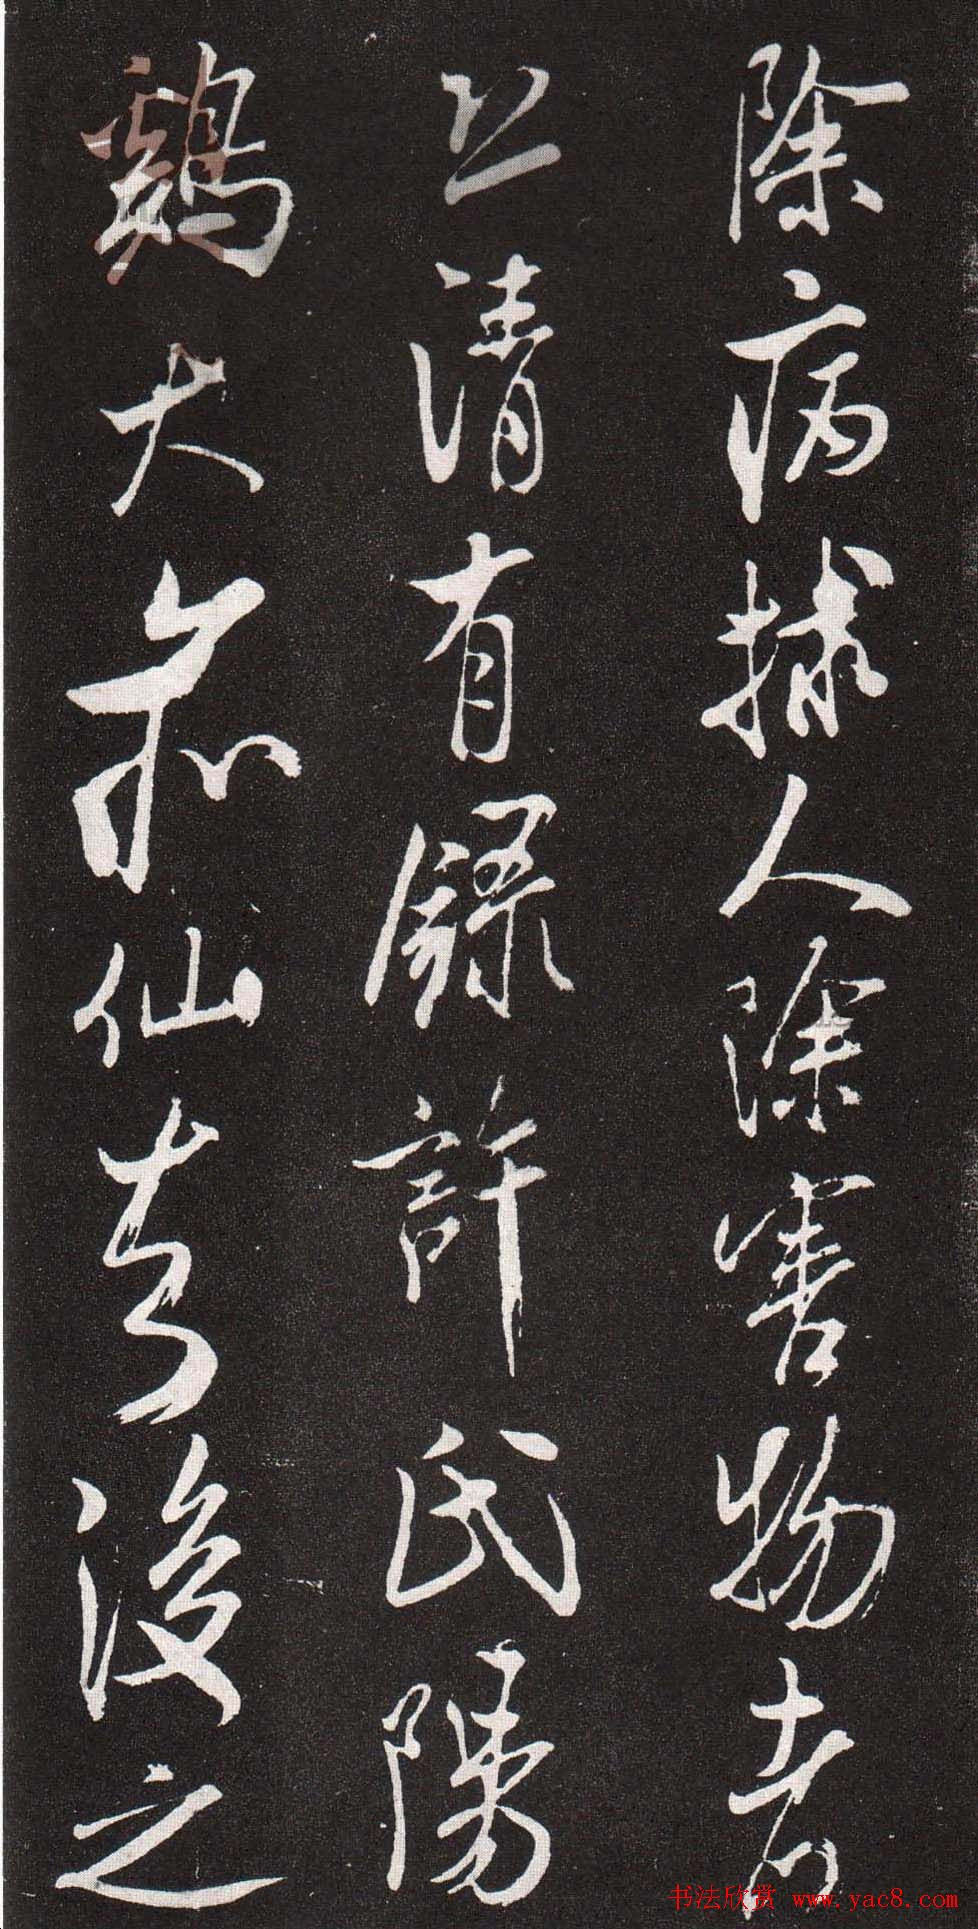 除病捄人除害物者
上清有錄許氏陽
鷄犬亦仙後之
书法欣赏 www.yac8.com